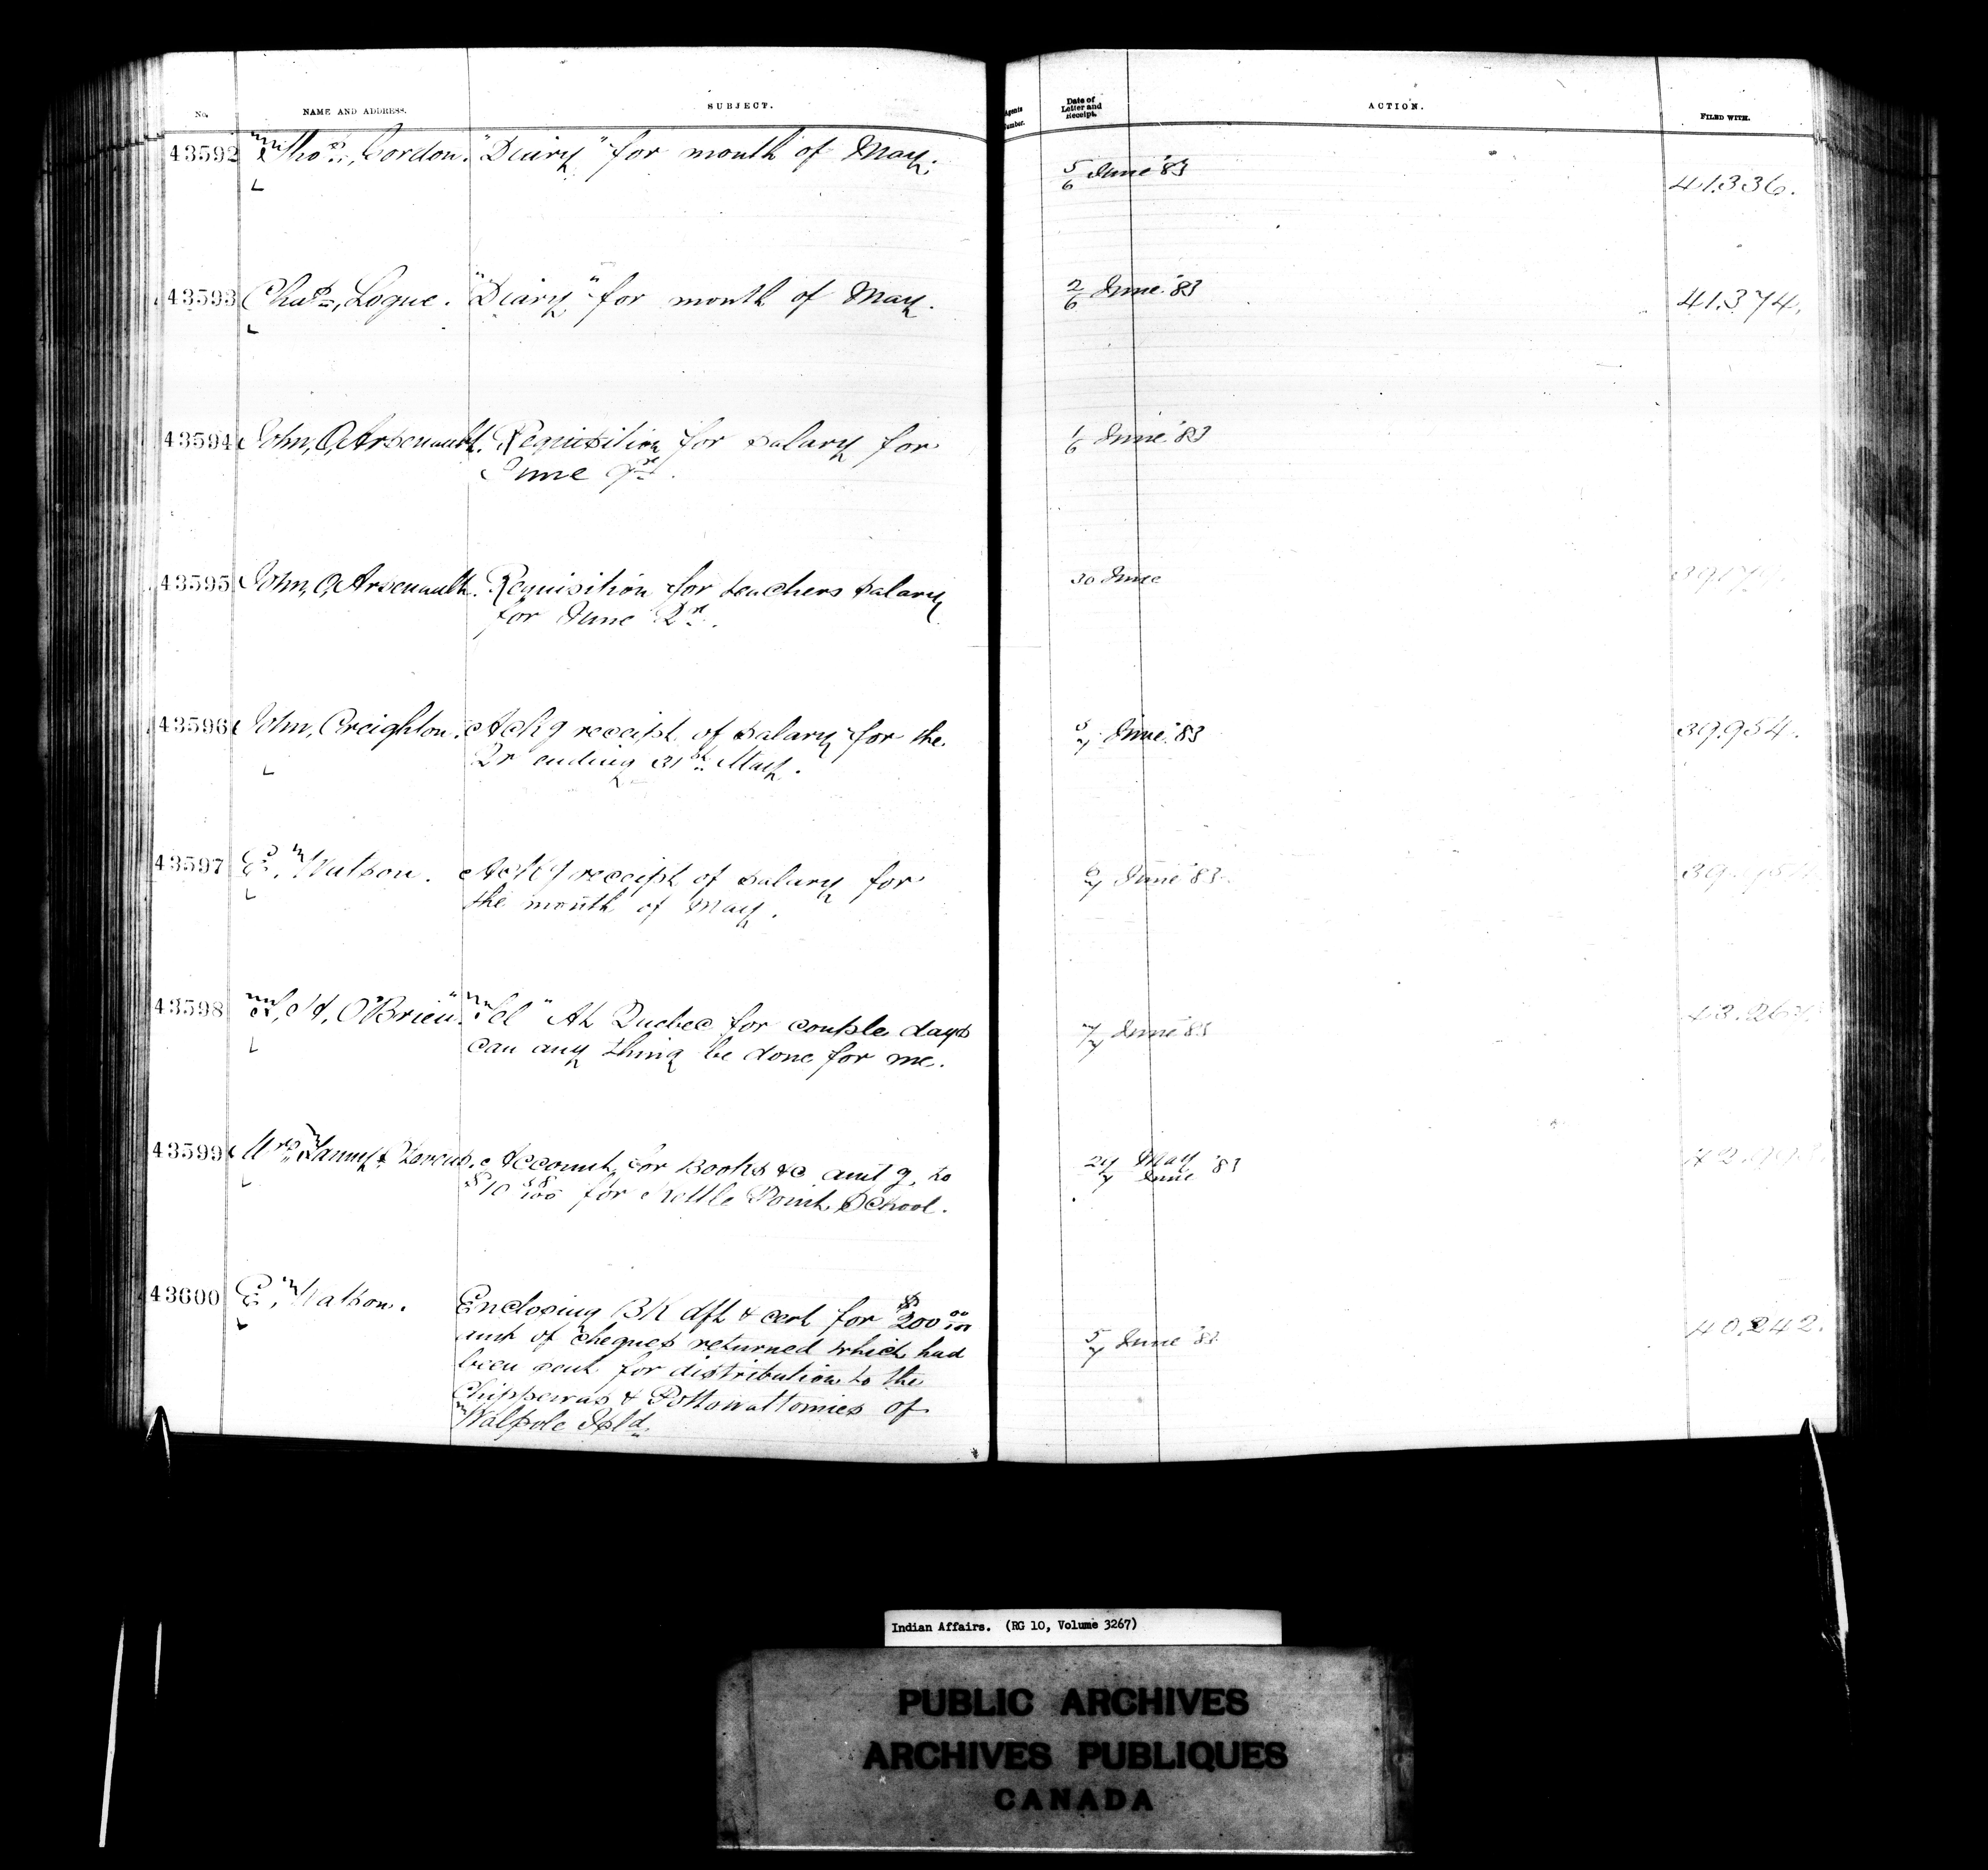 No. NAME AND ADDRESS. SUBJECT. Agents Number. Date of Letter and Receipt. ACTION. FILED WITH.
43592 Thos, Gordon. "Diary" for month of May. 5/6 June '83 41.336.
43593 Chas, Logue. "Diary" for month of May. 2/6 June '83 41.374.
43594 John, O, Arsenault. Requisition for salary for 1/6 June '83
June Qr.
43595 John, O, Arsenault. Requisition for teachers salary 30 June
for June Qr.
43596 John, Creighton. Ackg receipt of salary for the June '83 39.954.
Qr ending 31st May.
43597 Ed, Watson. Ackg receipt of salary for 6/7 June '83
the month of May.
43598 O'Brien. "Tel" At Quebec for couple days 7/7 June '83
can any thing be done for me.
43599 Mrs Account for Books &c amtg. to 29 May '83
$10 58/100 for Kettle Point School. 7 June
43600 E, Watson. Enclosing BK dft & cert for $200 00/100 5/7 June '83 40.242.
amt of cheques returned which had
been sent for distribution to the
Chippewas & Pottowattomies of
Walpole Isld.
Indian Affairs. (RG 10, Volume 3267)
PUBLIC ARCHIVES
ARCHIVES PUBLIQUES
CANADA